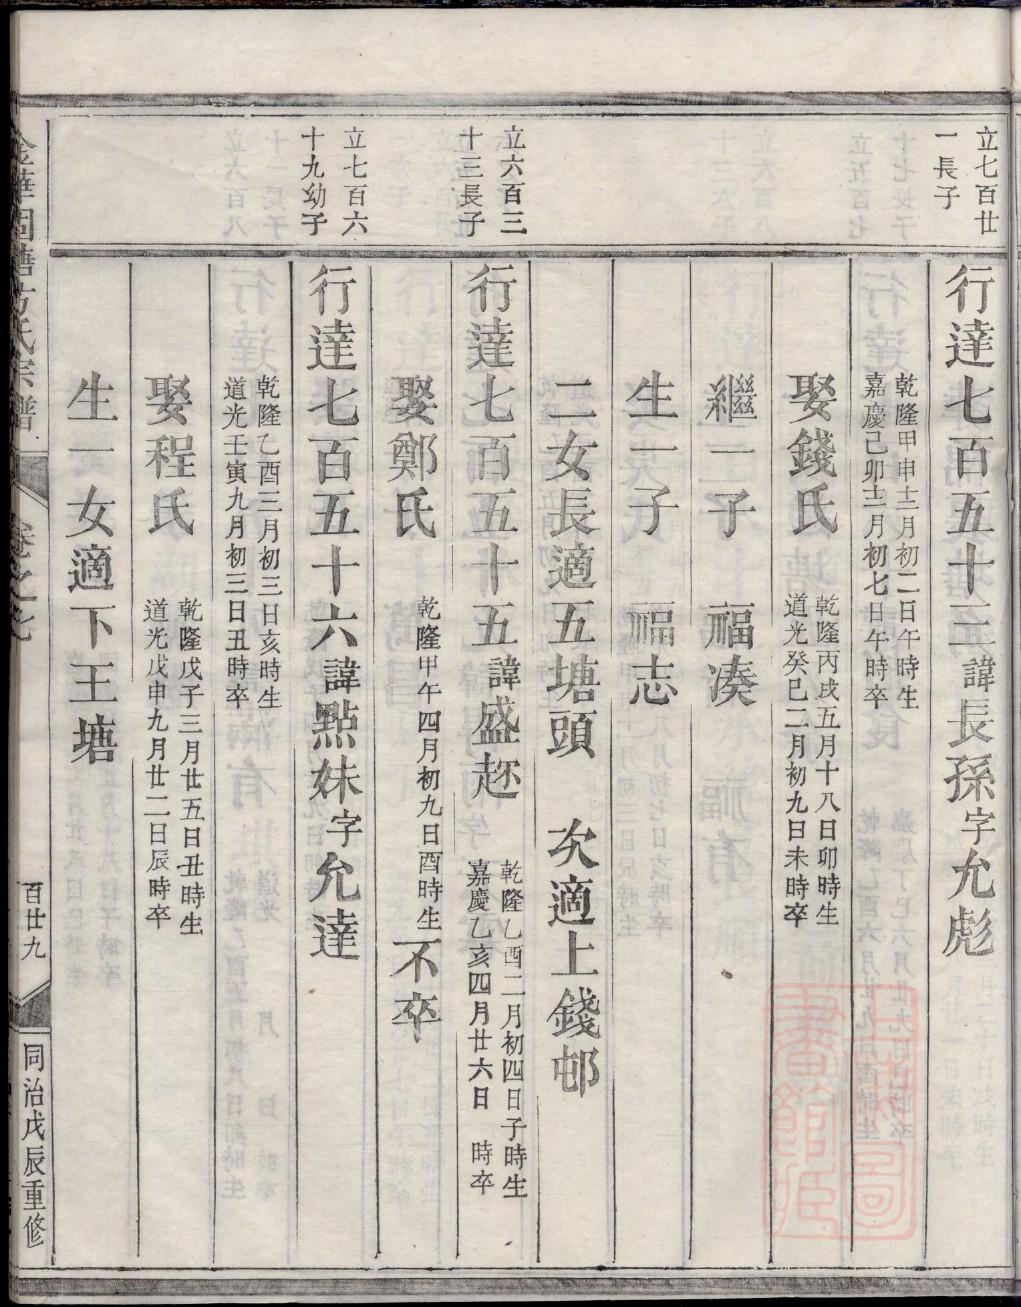 立七百廿
一長子
行達七百五十三諱長孫字允彪
乾隆甲申十二月初二日午時生
嘉慶己卯十二月初七日午時卒
娶錢氏
乾隆丙戌五月十八日卯時生
道光癸巳二月初九日未時卒
繼一子 福湊
生一子 福志
二女長適五塘頭 次適上錢邨
立六百三
十三長子
行達七百五十五諱盛趂
乾隆乙酉二月初四日子時生
嘉慶乙亥四月廿六日 時卒
娶鄭氏
乾隆甲午四月初九日酉時生
不卒
立七百六
十九幼子
行達七百五十六諱點妹字允達
乾隆乙酉三月初三日亥時生
道光壬寅九月初三日丑時卒
娶程氏
乾隆戊子三月廿五日丑時生
道光戊申九月廿二日辰時卒
生一女適下王塘
金華固塘方氏宗譜
卷之七
百廿九
同治戊辰重修